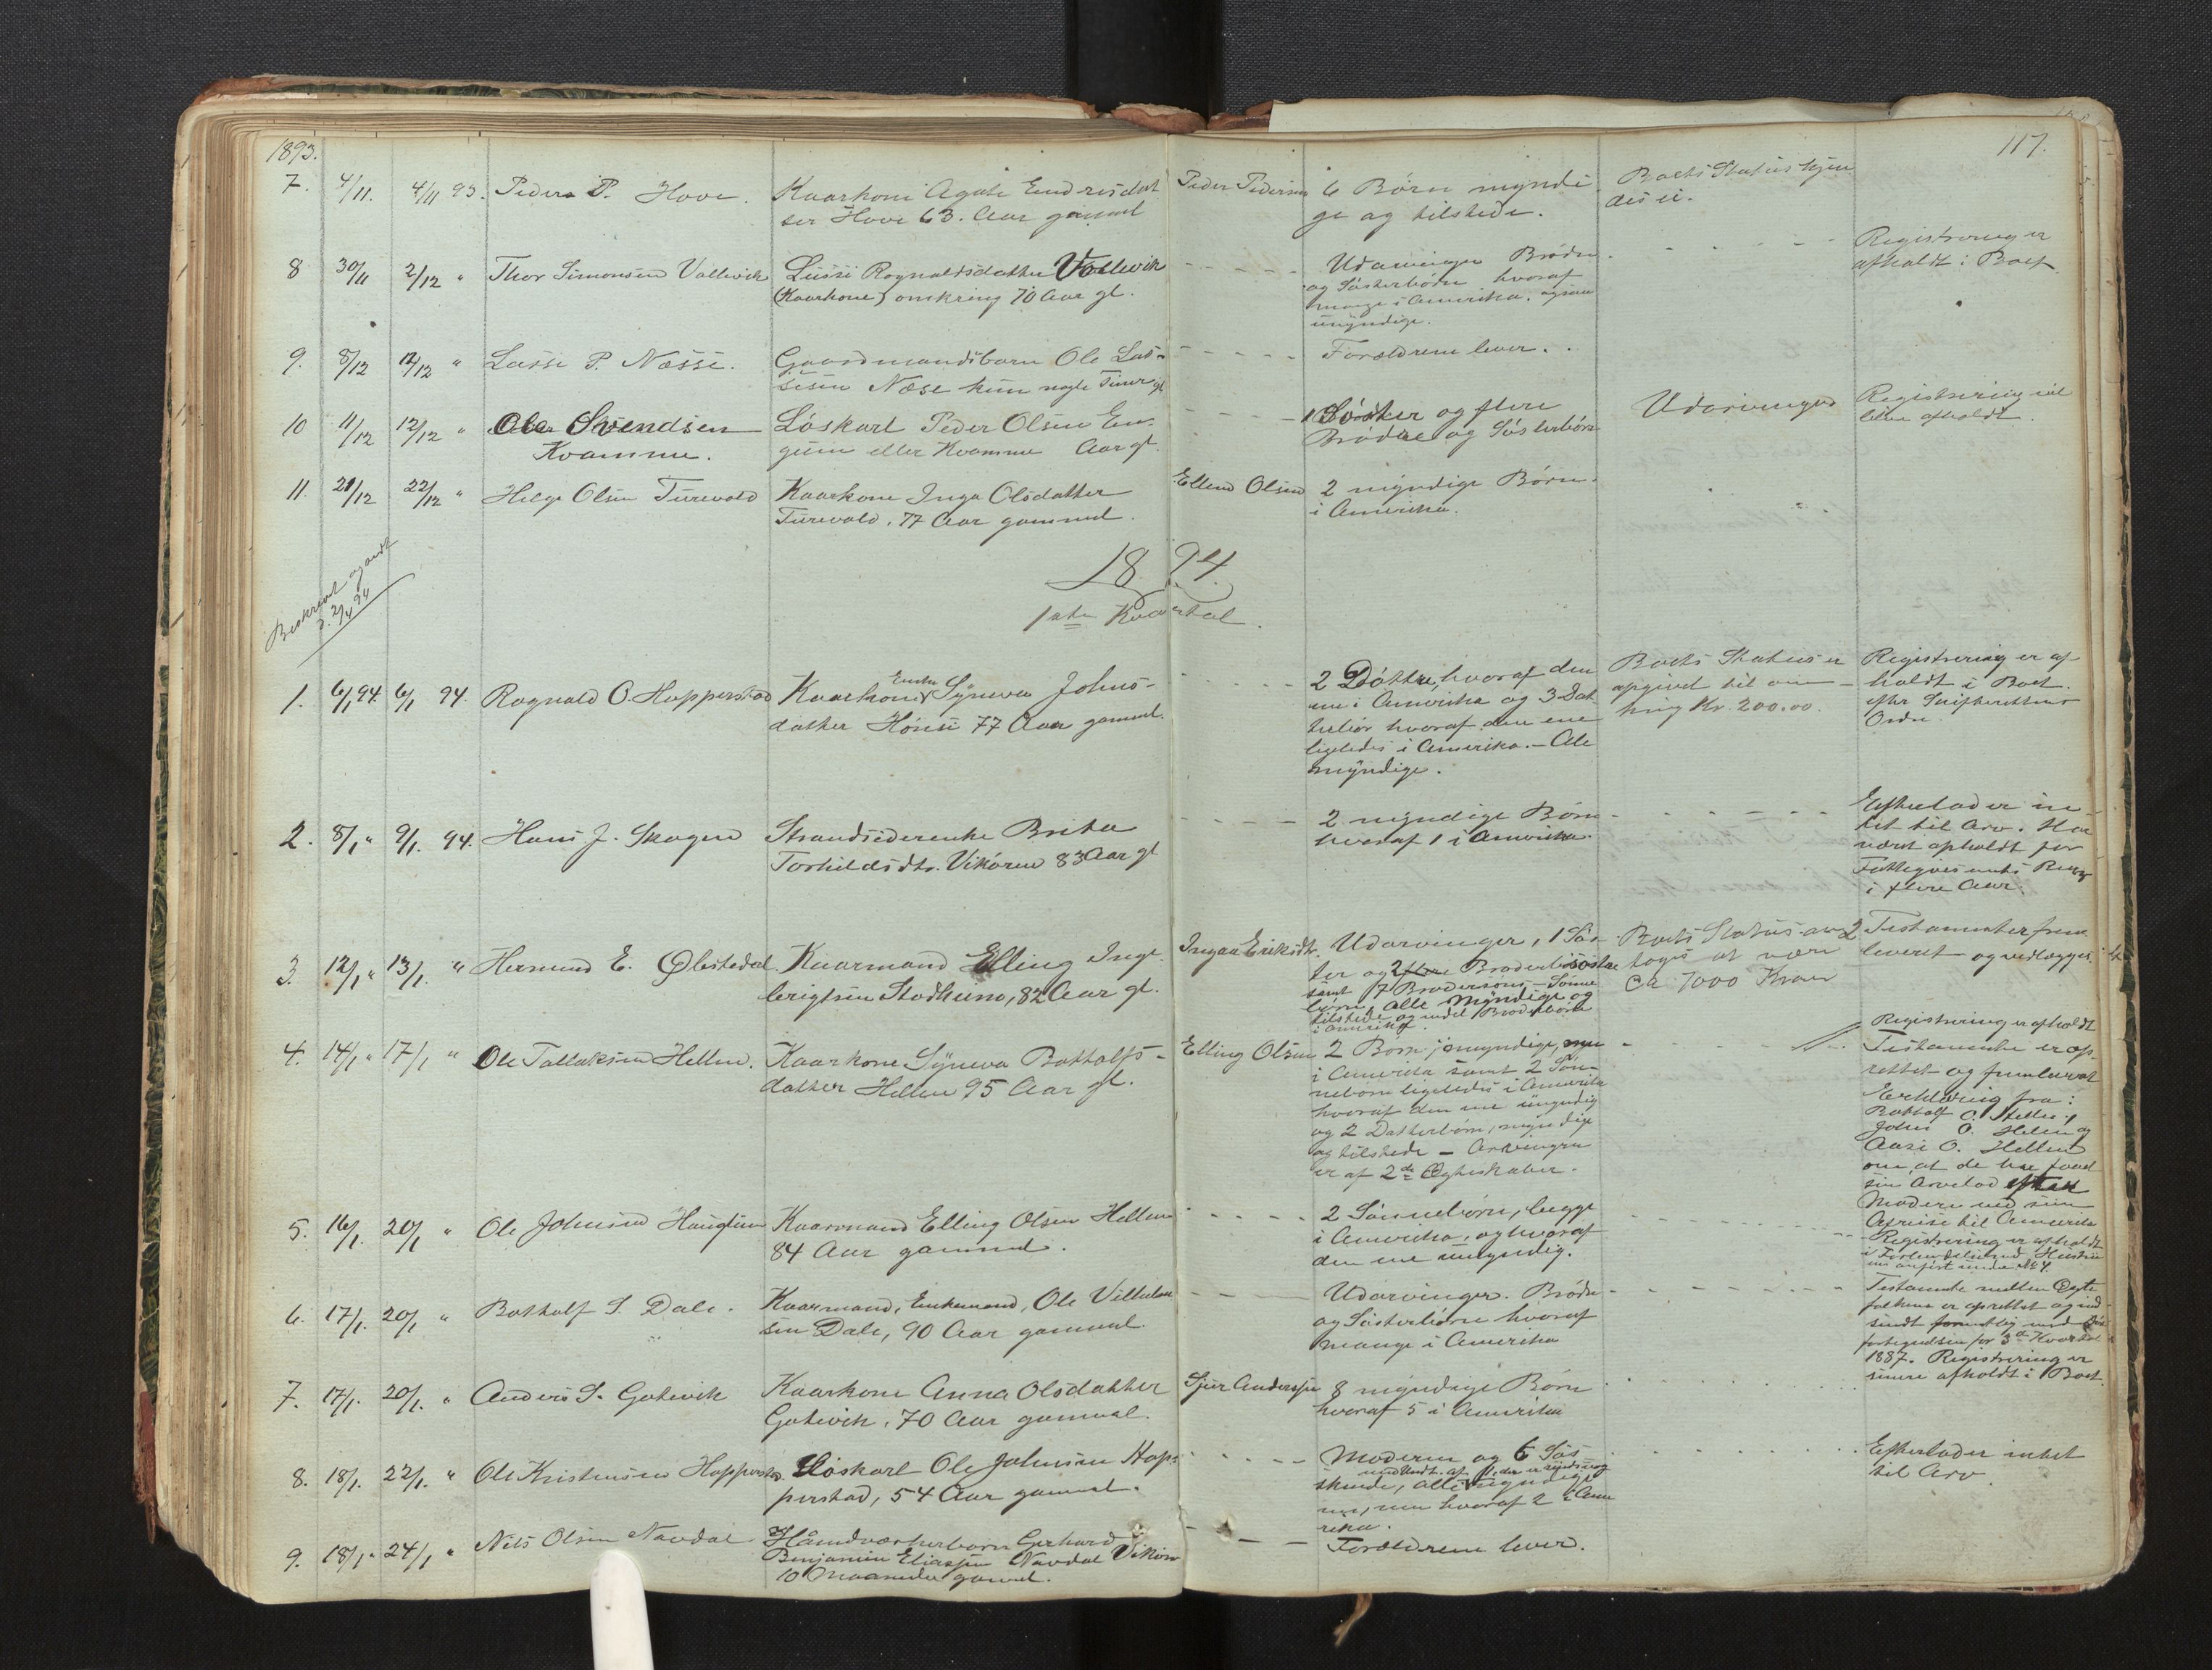 1893.
117.
7. 4/11. 4/11 93. Peder P. Hove. Kaarkone Agate Endresdat
ter Hove 63. Aar gammel
Peder Pedersen 6 Børn myndi
ge og tilstede.
Boets Status kjen
des ei.
8 30/11 2/12 " Thor Simonsen Vallevik Lussi Rognaldsdatter Vallevik
(Kaarkone) omkring 70 Aar gl.
Udarvinger Brødre
og Søsterbørn hvoraf
mange i Amerika, ogsaa
umyndige.
Registrering er
afholdt i Boet.
9. 8/12 12/12 " Lasse P. Næsse. Gaardmandsbarn Ole Las-
sesen Næse kun nogle Timer gl
Forældrene lever.
10 11/12 12/12 " Ole Svendsen
Kvamme.
Løskarl Peder Olsen En-
gum eller Kvamme Aar gl.
1 Søster og flere
Brødre og Søsterbørn
Udarvinger
Registrering vil
blive afholdt
11. 21/12 22/12 " Helge Olsen Turevold Kaarkone Inga Olsdatter
Turevold, 77 Aar gammel.
Ellend Olsen 2 myndige Børn
i Amerika.
Beskrevet og sendt
S. 2/4 94
1894.
1ste Kvartal.
1. 6/1 94. 6/1 94. Rognald O. Hopperstad Kaarkone Enke Syneva Johns-
datter Hønsi 77 Aar gammel.
2 Døttre, hvoraf den
ene i Amerika og 3 Dat
terbør hvoraf den ene
ligeledes i Amerika. - Ale
myndige.
Boets Status er
opgivet til om-
kring Kr. 200.00.
Registrering er af
holdt i Boet.
efter Skifterettens
Ordre.
2. 8/1 " 9/1 94. Hans J. Skagen Strandsiderenke Brita
Torkildsdtr. Vikøren 83 Aar gl
2 myndige Børn
hvoraf 1 i Amerika.
Efterlader in
tet til Arv. Har
været opholdt for
Fattigvæsenets Regn
i flere Aar.
3. 12/1 " 13/1 " Hermund E. Ølstedal. Kaarmand Elling Inge
brigtsen Stadheim, 82 Aar gl.
Ingaa Eriksdtr. Udarvinger, 1 Søs-
ter og 2 flere Broderdøttre
samt 7 Brodersøns-Sønne
børn, alle myndige og
tilstede og endel Broderbørn
i Amerika.
Boets Status an
tages at være
Ca 7000 Kroner
2 Testamenter frem
leveret og vedlægges.
4. 14/1 " 17/1 " Ole Tollaksen Hellen. Kaarkone Syneva Bottolfs-
datter Hellen 95 Aar gl.
Elling Olsen 2 Børn, myndige, men
i Amerika samt 2 Søn-
nebørn ligeledes i Amerika
hvoraf den ene umyndig
og 2 Datterbørn, myndige
og tilstede - Arvingene
er af 2de Ægteskaber.
Registrering er afholdt
Testamente er op-
rettet og fremlevert
Erklæring fra:
Bottolf O. Hellen,
John O. Hellen og
Aase O. Hellen
om, at de har faaet
sin Arvelod efter
Moderen ved sin
Afreise til Amerika
5. 16/1. 20/1 " Ole Johnsen Haugsum Kaarmand Elling Olsen Hellen
84 Aar gammel.
2 Sønnebørn, begge
i Amerika, og hvoraf
den ene umyndig.
Registrering er afholdt
i Forbindelse med Hustru
en anført under No 4.
6. 17/1. 20/1 " Bottolf S. Dale. Kaarmand, Enkemand, Ole Villum
sen Dale, 90 Aar gammel.
Udarvinger. Brødre
og Søsterbørn hvoraf
mange i Amerika
Testamente mellem Ægte
folkene er oprettet og ind-
sendt
fortegnelsen for 3de Kvartal
1887. Registrering er
senere afholdt i Boet.
7. 17/1. 20/1. " Anders S. Gotevik Kaarkone Anna Olsdatter
Gotevik, 70 Aar gammel.
Sjur Anderssen 8 myndige Børn
hvoraf 5 i Amerika
8. 18/1. 22/1. " Ole Kristensen Hopperstad. Løskarl Ole Johnsen Hop-
perstad, 54 Aar gammel.
Moderen og 6 Søs
skende, alle myndige
men hvoraf 2 i Ame
rika.
Efterlader intet
til Arv
9. 18/1 " 24/1 " Nils Olsen Navdal Haandværkerbarn Gerhard
Benjamin Eliassen Navdal Vikøren
10 Maaneder gammel.
Forældrene lever.